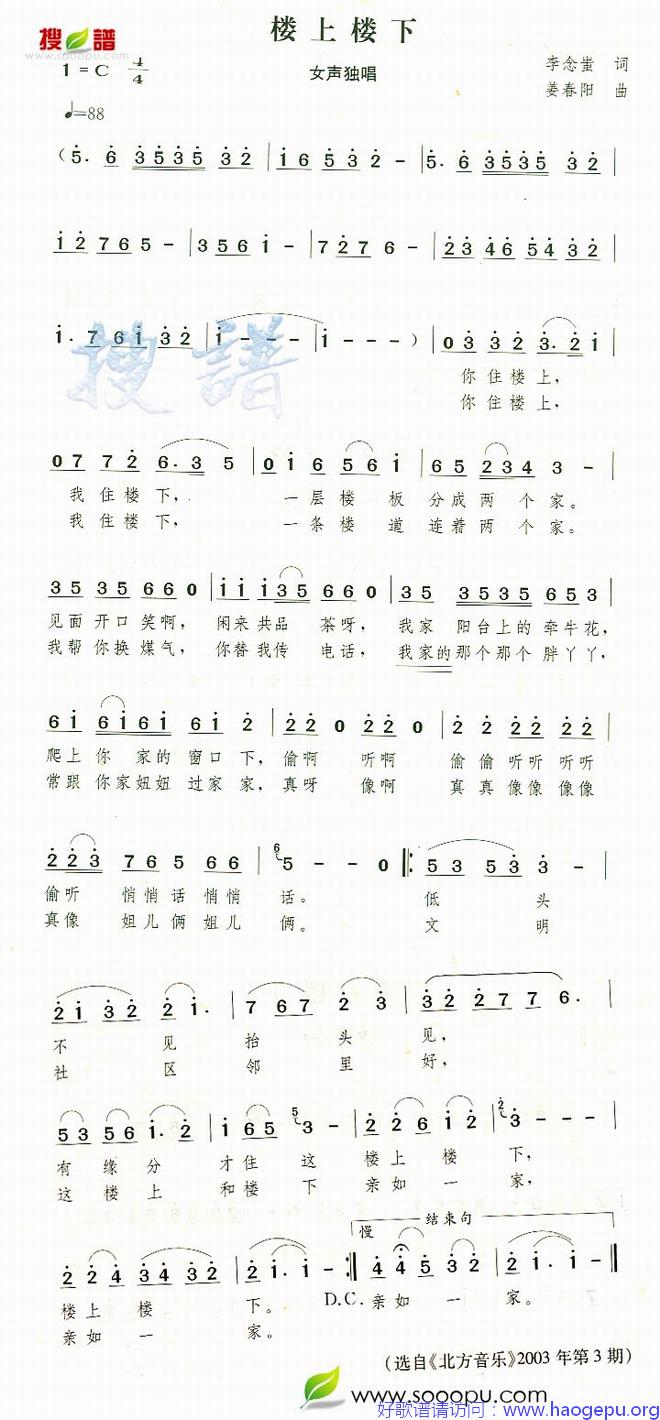 搜谱
www.sooopu.com
楼上楼下
1=C 4/4
女声独唱
李念蚩 词
姜春阳 曲
♩=88
(5. 6 3535 32 | 16 532 - | 5. 6 3535 32 |
12 765 - | 356 1 - | 727 6 - | 23 46 54 32 |
1. 761 32 | 1 - - - | 1 - - - ) | 03 332 3.21 |
你住楼上,
你住楼上,
07 72 6.3 5 | 01 6 56 1 | 65 234 3 - |
我住楼下, 一层楼板 分成两个家。
我住楼下, 一条楼道 连着两个家。
35 35 66 0 | 11 135 66 0 | 35 3535 653 |
见面开口笑啊, 闲来共品茶呀, 我家阳台上的牵牛花,
我帮你换煤气, 你替我传电话, 我家的那个那个胖丫丫,
61 6161 61 2 | 22 0 22 0 | 2 2 22 22 |
爬上你家的窗口下, 偷啊 听啊 偷偷听听听听
常跟你家妞妞过家家, 真呀 像啊 真真像像像像
223 76 5 66 | 6 5 - - 0 |: 53 53 3 - |
偷听 悄悄话悄悄 话。 低头
真像 姐儿俩姐儿 俩。 文明
21 32 21. | 7 67 2 3 | 32 2776. |
不见抬头见,
社区邻里好,
53 56 1.2 | 1 65 5 3 - | 22 6 12 | 2 3 - - - |
有缘分 才住这 楼上楼下,
这楼上 和楼下 亲如一家,
慢 结束句
22 4 34 32 | 21. 1 - :| 4 45 32 | 21. 1 - ||
楼上楼下。 D.C. 亲如一家。
亲如一家。
(选自《北方音乐》2003年第3期)
www.sooopu.com
好歌谱请访问:www.haogepu.org